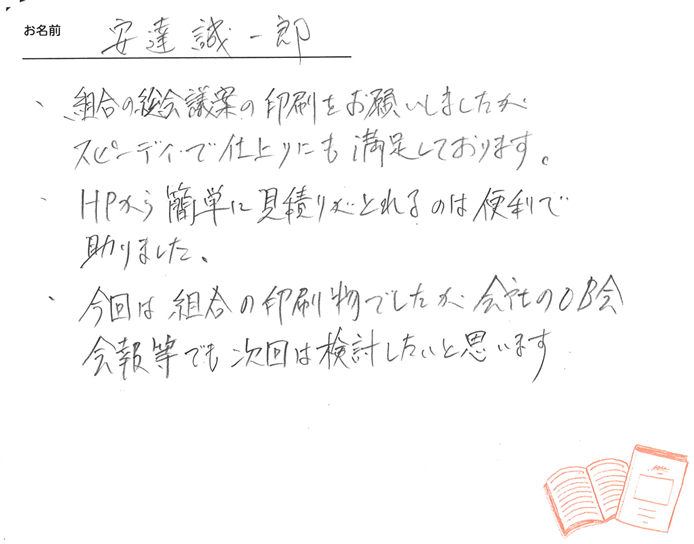 お名前 安達誠一郎
・組合の総会議案の印刷をお願いしましたが
スピーディーで仕上りにも満足しております。
・HPから簡単に見積りがとれるのは便利で
助りました。
・今回は組合の印刷物でしたが会社のOB会
会報等でも次回は検討したいと思います